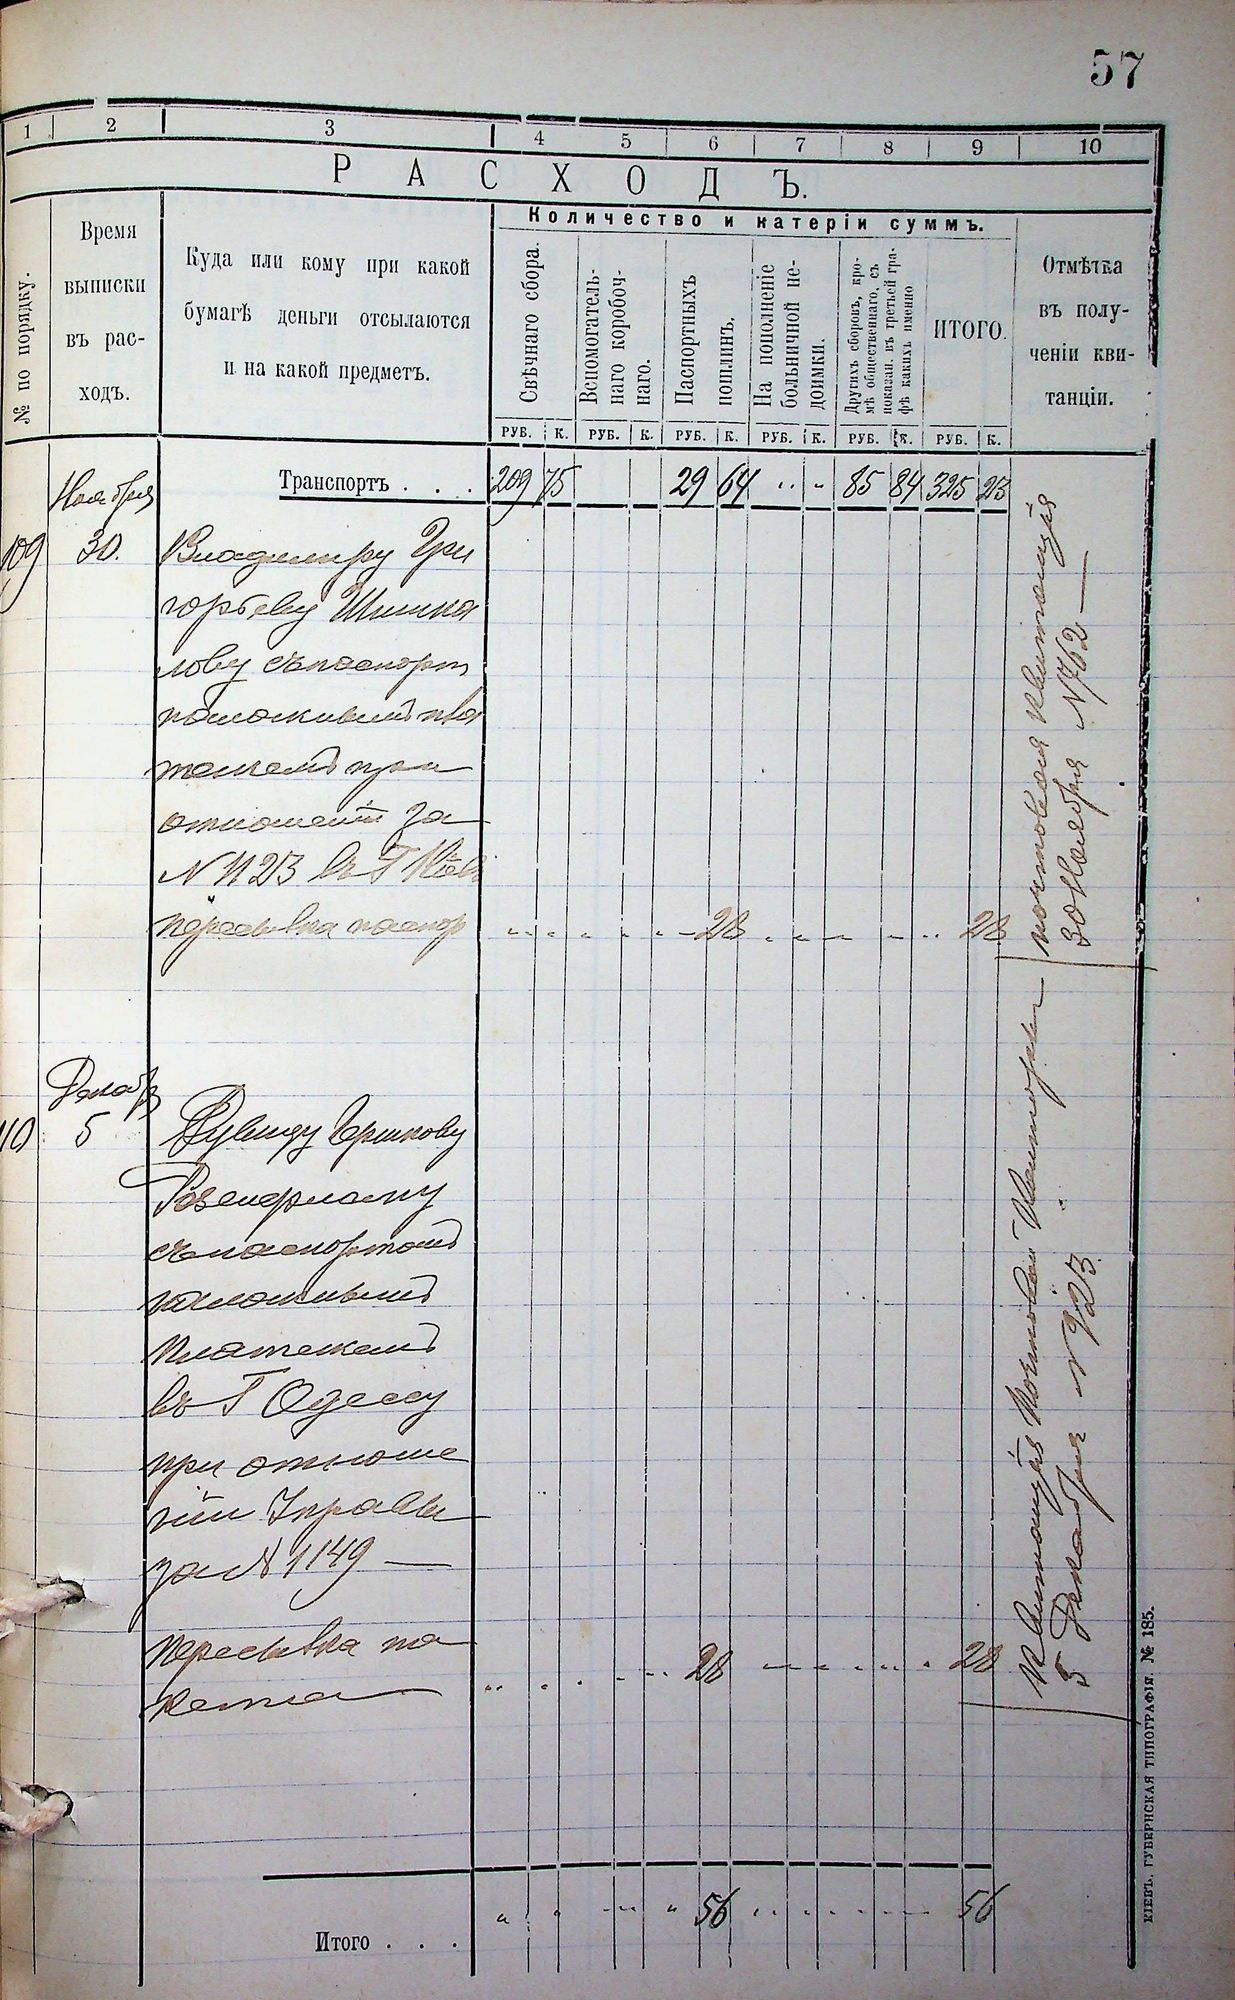 57
1 2 3 4 5 6 7 8 9 10
РАСХОДЪ.
№ по порядку.
Время
выписки
въ рас-
ходъ.
Куда или кому при какой
бумагѣ деньги отсылаются
и на какой предметъ.
Количество и катеріи суммъ.
Свѣчнаго сбора.
Вспомогатель-
наго коробоч-
наго.
Паспортныхъ
пошлинъ.
На пополненіе
больничной не-
доимки.
Другихъ сборовъ, кро-
мѣ общественнаго, съ
показан. въ третьей гра-
фѣ какихъ именно
ИТОГО.
Отмѣтка
въ полу-
ченіи кви-
танціи.
РУБ. К. РУБ. К. РУБ. К. РУБ. К. РУБ. К. РУБ. К.
Транспортъ . . . 209 75 29 64 85 84 325 23
Ноября
109 30. Владимиру Гри
горьеву Шишка
лову съ паспорт
наложивши пла
тежемъ при
отношеніи за
N 1123 въ Г Кіевъ
пересылка паспор 28 28
почтовая Квитанція
30 Ноября N 762
Декабр
110 5 Рувиму Гершкову
Розенфману
съ паспортомъ
наложивши
платежемъ
въ Г Одессу
при отноше
ніи Управы
за N 1149
пересылка па
кета 28 28
Квитанція Почтовой Конторы
5 Декабря N 923.
Итого . . . 56 56
КІЕВЪ, ГУБЕРНСКАЯ ТИПОГРАФІЯ. № 185.